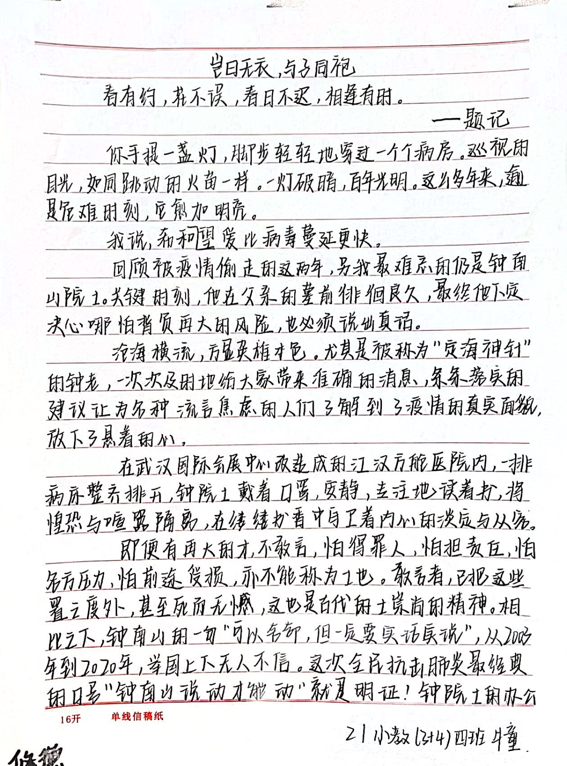 岂曰无衣，与子同袍
春有约，花不误，春日不迟，相逢有时。
——题记
你手提一盏灯，脚步轻轻地穿过一个个病房。巡视的
目光，如同跳动的火苗一样。一灯破暗，百年光明。这么多年来，逾
是危难时刻，它愈加明亮。
我说，和希望 爱比病毒蔓延更快。
回顾被疫情偷走的这两年，另我最难忘的仍是钟南
山院士。关键时刻，他在父亲的墓前徘徊良久，最终他下定
决心哪怕背负再大的风险，也必须说出真话。
沧海横流，方显英雄本色。尤其是被称为"定海神针"
的钟老，一次次及时地给大家带来准确的消息、条条落实的
建议让为各种流言焦虑的人们了解到了疫情的真实面貌，
放下了悬着的心。
在武汉国际会展中心改造成的江汉方舱医院内，一排
病床整齐排开，钟院士戴着口罩，安静，专注地读着书，将
惶恐与喧嚣隔离，在缕缕书香中守卫着内心的淡定与从容。
即便有再大的才不敢言，怕得罪人，怕担责任，怕
各方压力，怕前途受损，亦不能称为士也。敢言者，已把这些
置之度外，甚至死而无憾，这也是古代的士崇尚的精神。相
比之下，钟南山的一句"可以各部，但一定要实话实说"，从2003
年到2020年，举国上下无人不信。这次全民抗击肺炎最经典
的口号"钟南山说动才能动"就是明证！钟院士的办公
16开 单线信稿纸
21小教(3+4)四班 牛童
修德